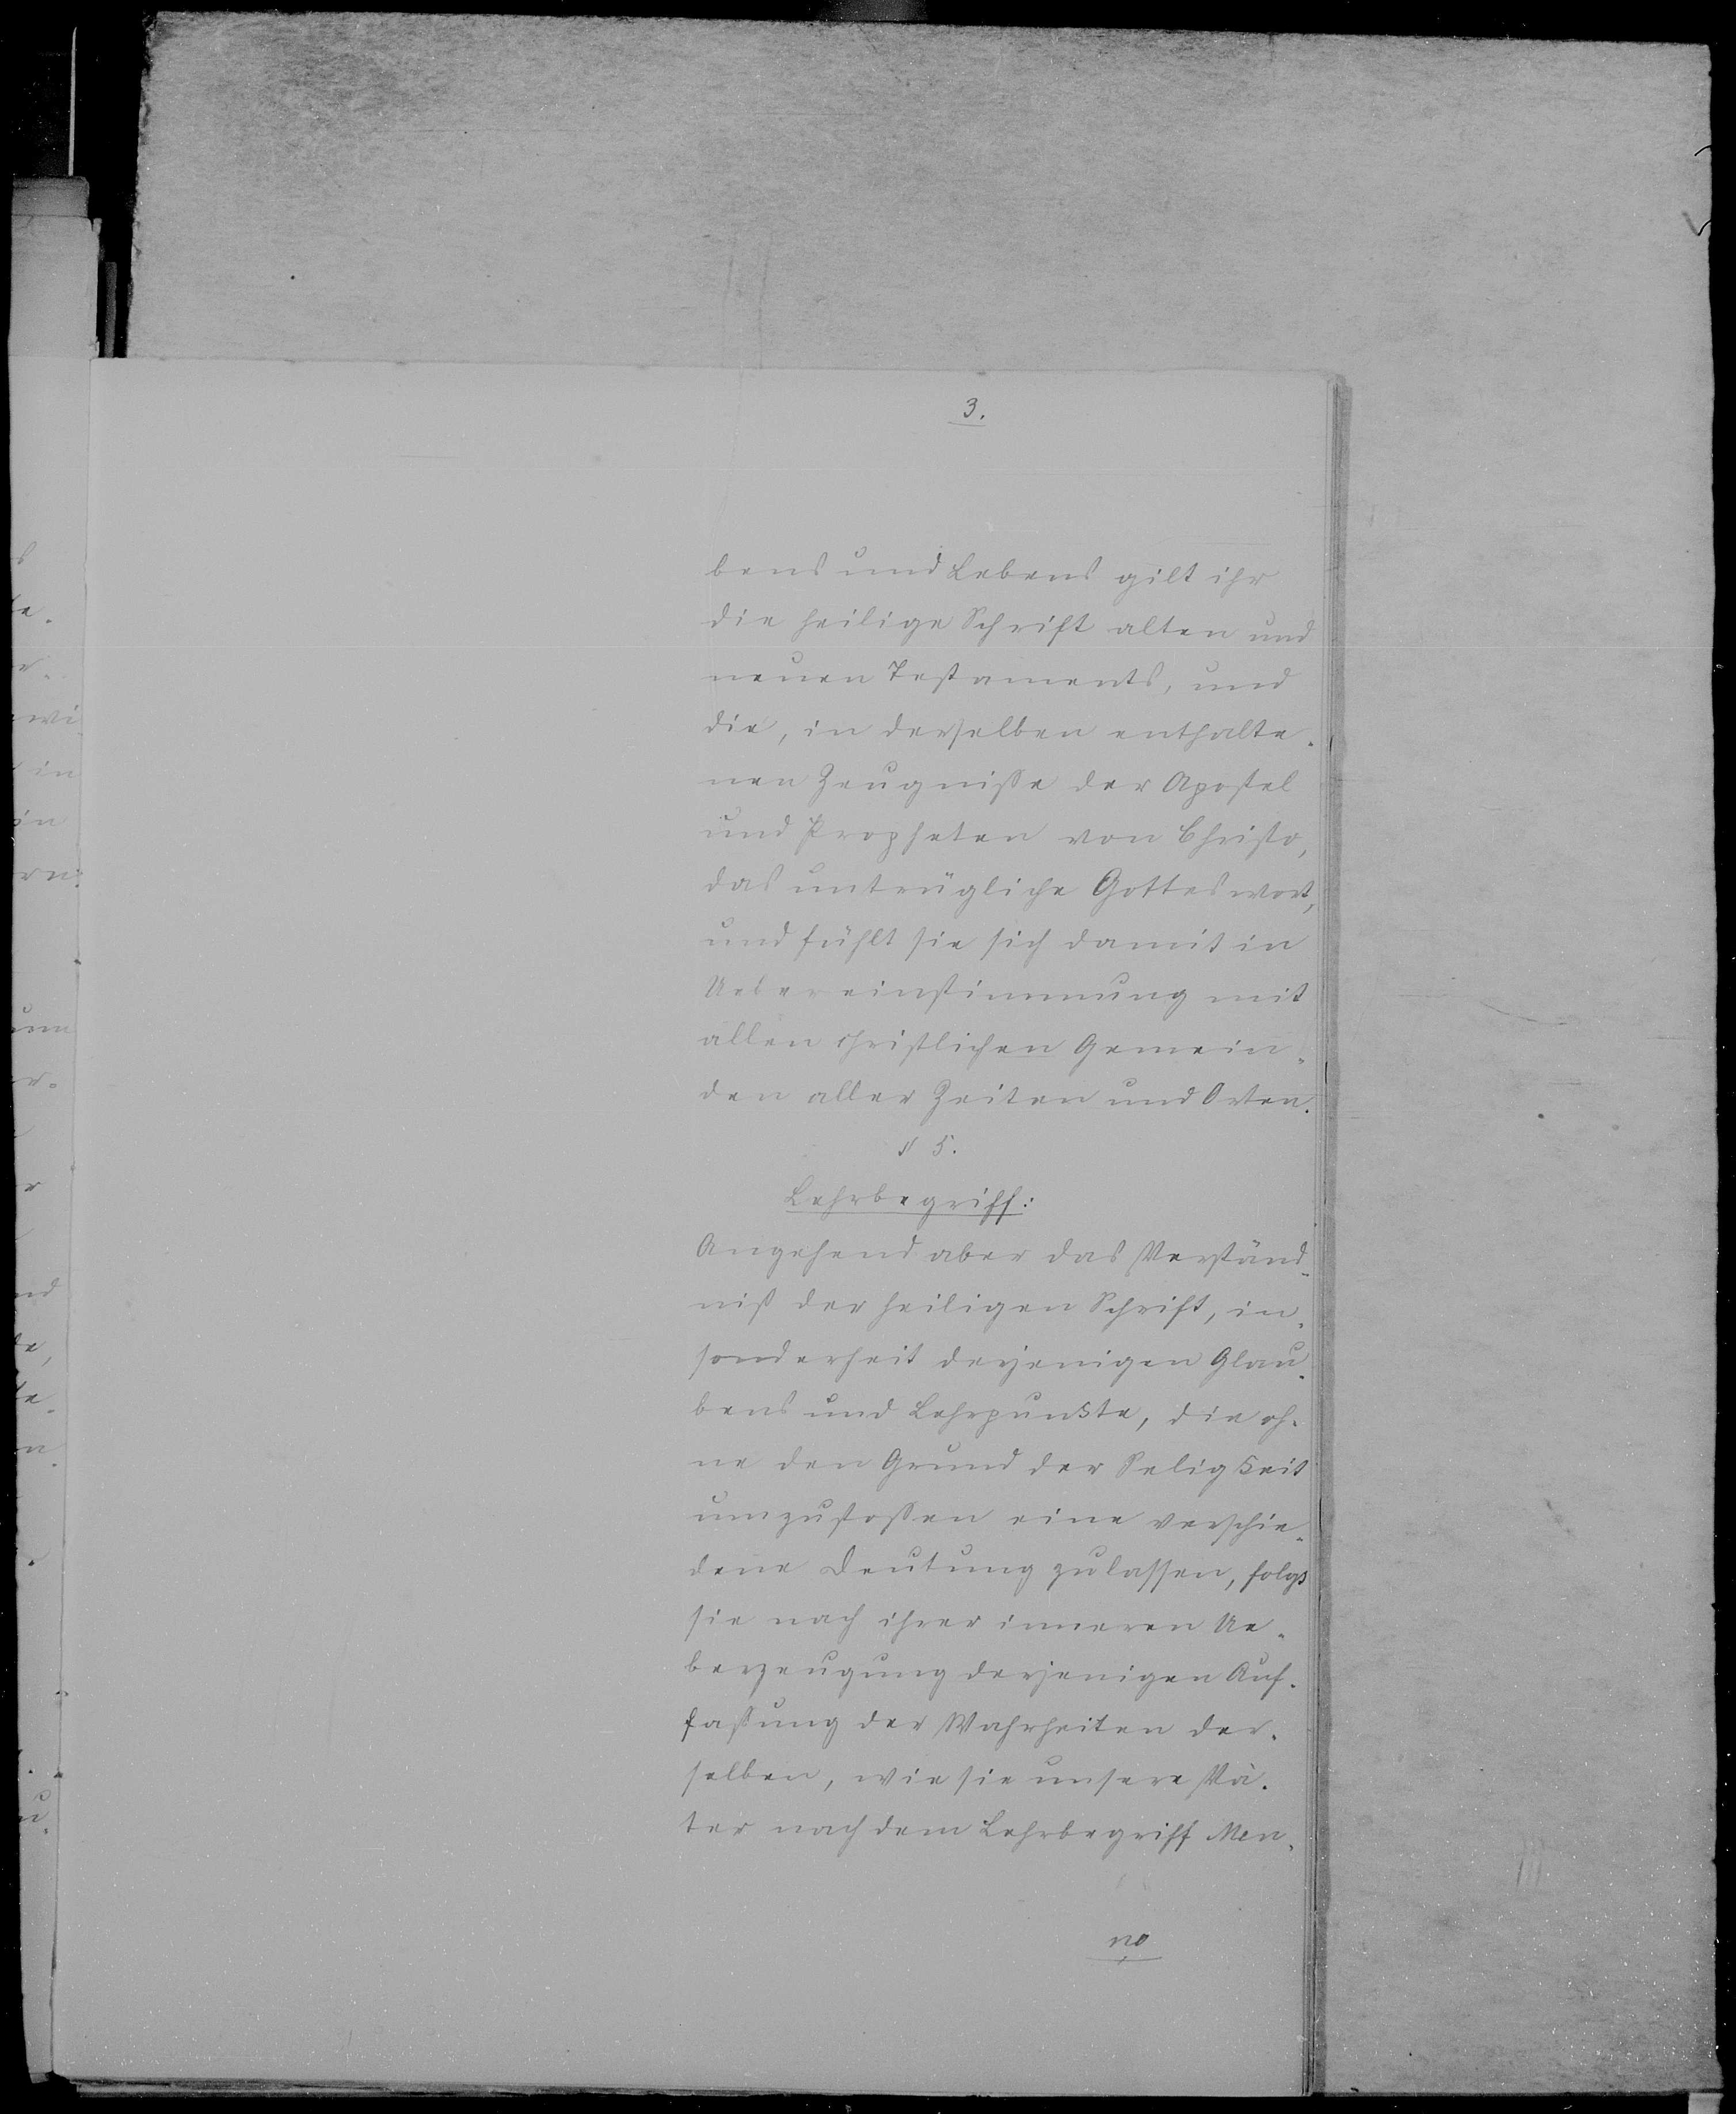 3.
bens und Lebens gilt ihr
die heilige Schrift alten und
neuen Testaments, und
die, in derselben enthalte-
nen Zeugniße der Apostel
und Propheten von Christo,
das untrügliche Gotteswort,
und fühlt sie sich damit in
Uebereinstimmung mit
allen christlichen Gemein-
den aller Zeiten und Orten.
§ 5.
Lehrbegriff:
Angehend aber das Verständ-
niß der heiligen Schrift, in-
sonderheit derjenigen Glau-
bens und Lehrpunkte, die oh-
ne den Grund der Seligkeit
umzustoßen eine verschie-
dene Deutung zulassen, folgt
sie nach ihrer inneren Ue-
berzeugung derjenigen Auf-
faßung der Wahrheiten der-
selben, wie sie unsere Vä-
ter nach dem Lehrbegriff Men-
no